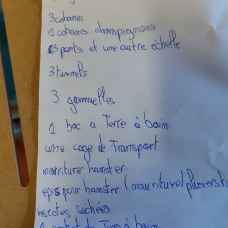 3 cabanes
1 cabane champignons
3 ponts et une autre échelle
3 tunnels
3 gamelles
1 bac à Terre à bain
une cage de Transport
nourriture hamster
pour hamster (nourriture/plusieurs
insectes séchées
bain